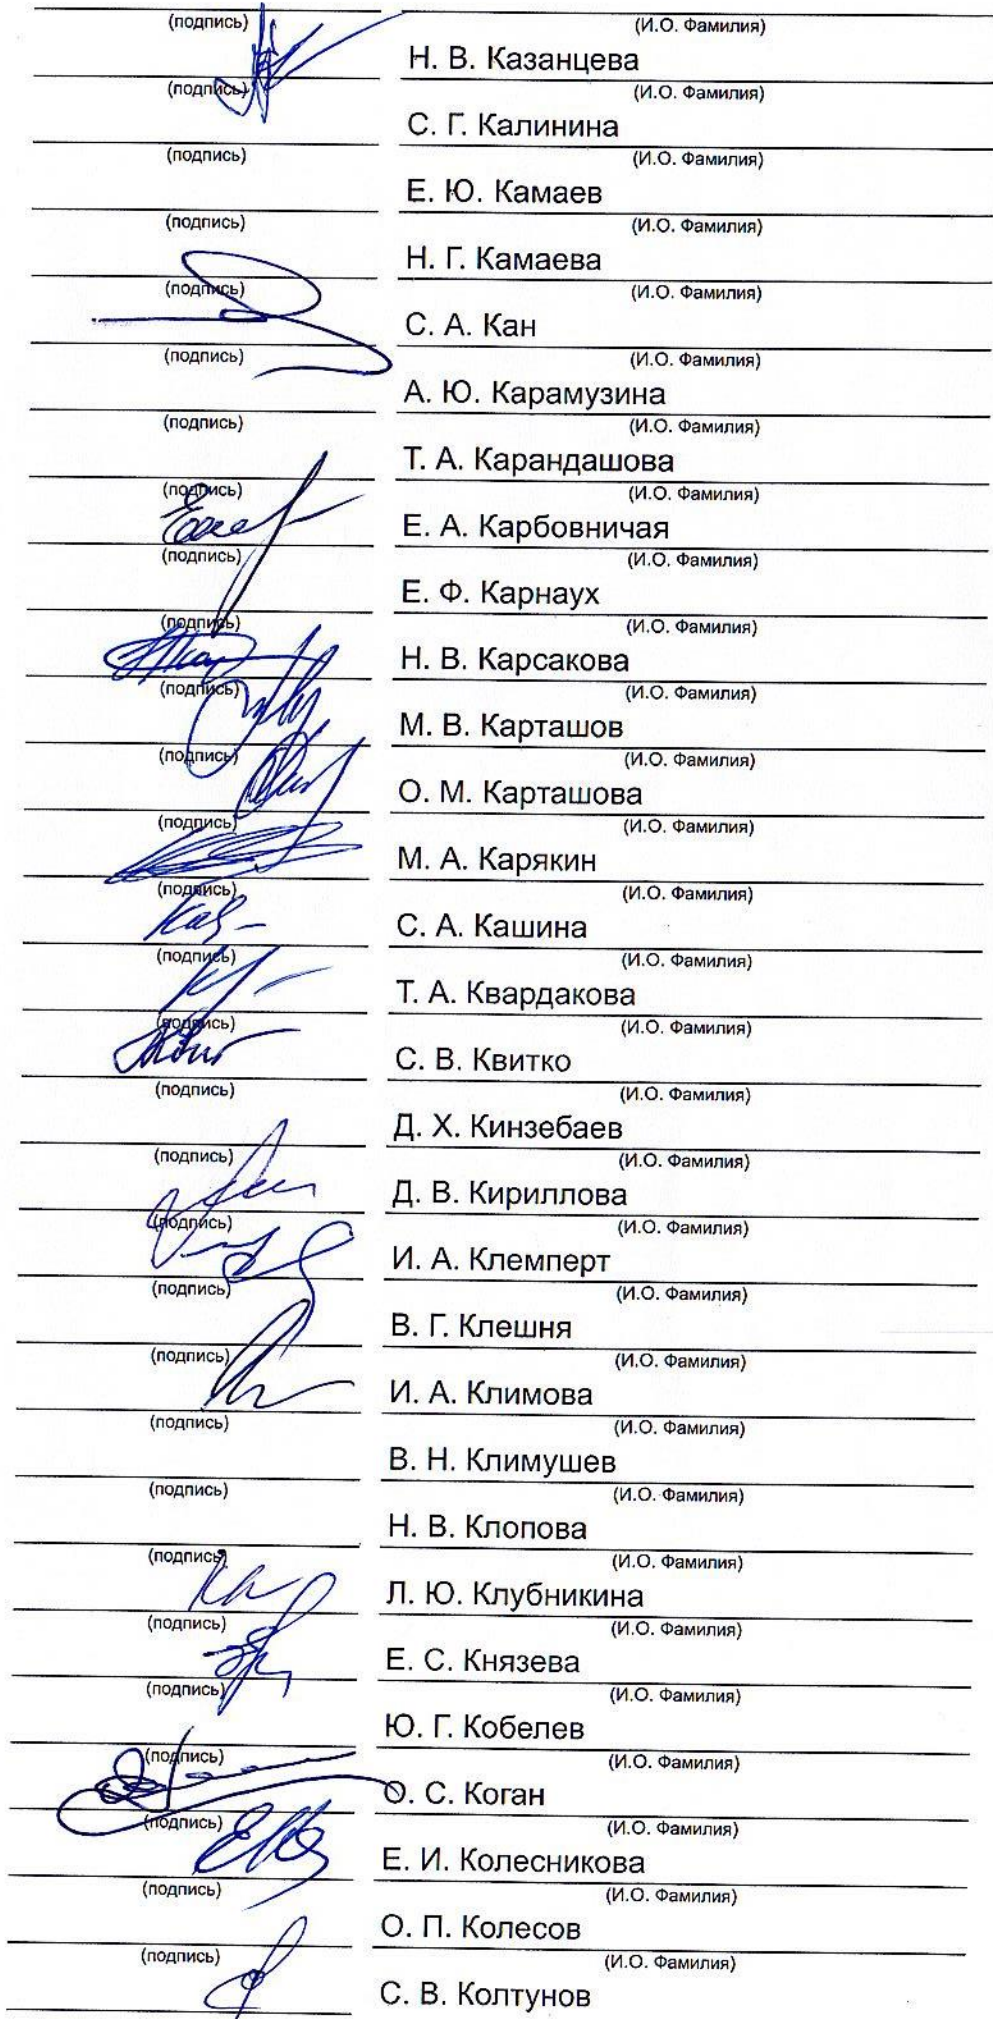 (подпись) (И.О. Фамилия)
Н. В. Казанцева
(подпись) (И.О. Фамилия)
С. Г. Калинина
(подпись) (И.О. Фамилия)
Е. Ю. Камаев
(подпись) (И.О. Фамилия)
Н. Г. Камаева
(подпись) (И.О. Фамилия)
С. А. Кан
(подпись) (И.О. Фамилия)
А. Ю. Карамузина
(подпись) (И.О. Фамилия)
Т. А. Карандашова
(подпись) (И.О. Фамилия)
Е. А. Карбовничая
(подпись) (И.О. Фамилия)
Е. Ф. Карнаух
(подпись) (И.О. Фамилия)
Н. В. Карсакова
(подпись) (И.О. Фамилия)
М. В. Карташов
(подпись) (И.О. Фамилия)
О. М. Карташова
(подпись) (И.О. Фамилия)
М. А. Карякин
(подпись) (И.О. Фамилия)
С. А. Кашина
(подпись) (И.О. Фамилия)
Т. А. Квардакова
(подпись) (И.О. Фамилия)
С. В. Квитко
(подпись) (И.О. Фамилия)
Д. Х. Кинзебаев
(подпись) (И.О. Фамилия)
Д. В. Кириллова
(подпись) (И.О. Фамилия)
И. А. Клемперт
(подпись) (И.О. Фамилия)
В. Г. Клешня
(подпись) (И.О. Фамилия)
И. А. Климова
(подпись) (И.О. Фамилия)
В. Н. Климушев
(подпись) (И.О. Фамилия)
Н. В. Клопова
(подпись) (И.О. Фамилия)
Л. Ю. Клубникина
(подпись) (И.О. Фамилия)
Е. С. Князева
(подпись) (И.О. Фамилия)
Ю. Г. Кобелев
(подпись) (И.О. Фамилия)
О. С. Коган
(подпись) (И.О. Фамилия)
Е. И. Колесникова
(подпись) (И.О. Фамилия)
О. П. Колесов
(подпись) (И.О. Фамилия)
С. В. Колтунов